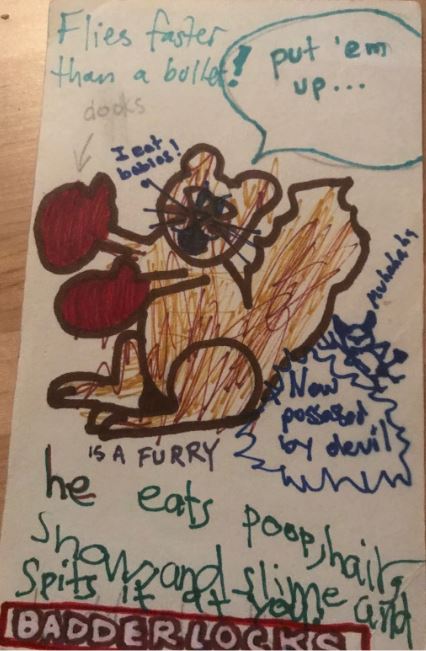 Flies faster
than a bullet!
put 'em
up...
dooks
I eat
babies!
Muhahaha
Now
possased
by devil
IS A FURRY
he eats poop, hair,
snow, and slime and
spits it at you!
BADDERLOCKS